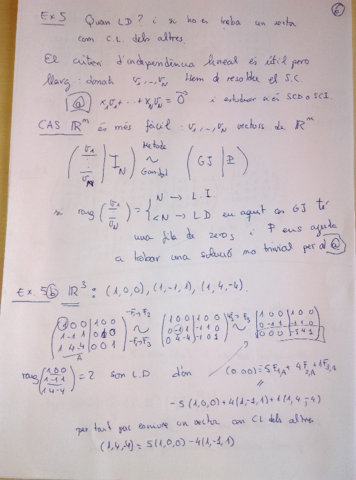 6
Ex 5 Quan LD? i si ho és troba un vector
com C.L. dels altres.
El criteri d'independència lineal és útil però
llarg: donats v₁,…,v_N hem de resoldre el S.C
(a) x₁v₁+…+x_N v_N = 0⃗ i estudiar si és SCD o SCI.
CAS ℝᵐ és més fàcil: v₁,…,v_N vectors de ℝᵐ
( v₁ ⋮ v_N | I_N ) ~ Mètode Gauss ( GJ | P )
si rang ( v₁ ⋮ v_N ) = { N → L.I.
< N → LD en aquest cas GJ té
una fila de zeros i P ens ajuda
a trobar una solució no trivial per a (a)
Ex. 5 (b) ℝ³: (1,0,0), (1,-1,1), (1,4,-4).
-F₁+F₂
-F₁+F₃
1 0 0 | 1 0 0
1 -1 1 | 0 1 0
1 4 -4 | 0 0 1
A
~
1 0 0 | 1 0 0
0 -1 1 | -1 1 0
0 4 -4 | -1 0 1
~
1 0 0 | 1 0 0
0 -1 1 | -1 1 0
0 0 0 | -5 4 1
rang ( 1 0 0 / 1 -1 1 / 1 4 -4 ) = 2 són L.D d'on (0 0 0) = -5F₁,A + 4F₂,A + 1F₃,A
-5(1,0,0)+4(1,-1,1)+1(1,4,-4)
per tant puc escriure un vector com CL dels altres
(1,4,-4) = 5(1,0,0) -4(1,-1,1)